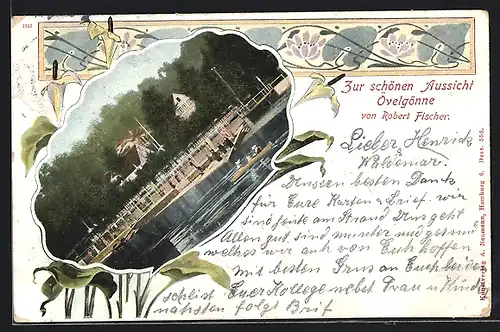 1581
Zur schönen Aussicht
Övelgönne
von Robert Fischer.
Lieber Henrich
& Woldemar.
Unseren besten Dank
für Eure Karten & Brief. wir
sind heute am Strand Uns geht
Allen gut, sind munter und gesund
welches wir auch von Euch hoffen
mit besten Grus an Euch beide
schlist Euer Kollege nebst Frau u Kinder
nächsten folgt Brief
Kunstverlag A. Neumann, Hamburg 6. Dess. 558.